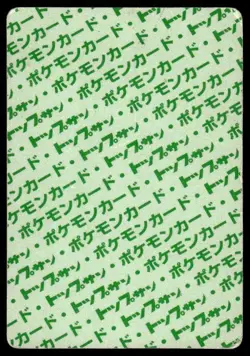 ポケモンカード・
ポケモンカード・トップサン
トップサン・ポケモンカード・
トップサン・ポケモンカード
ド・トップサン・ポケモンカード
カード・トップサン・ポケモンカード
ンカード・トップサン・ポケモン
モンカード・トップサン・ポケモン
ケモンカード・トップサン・ポケ
ポケモンカード・トップサン・
ポケモンカード・トップサン
・ポケモンカード・トップサン
トップサン・ポケモンカード
トップサン・ポケモン
トップサン